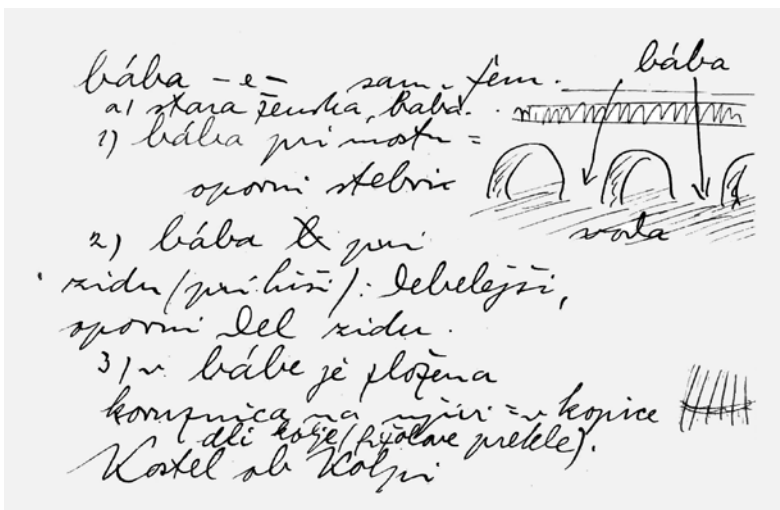 bába -e- sam. fem.
a) stara ženska, baba.
1) bába pri mostu =
oporni stebric
bába
voda
2) bába pri
zidu (pri hiši): debelejši,
oporni del zidu.
3) v bábe je zložena
koruznica na njivi = v kopice
ali kolje (fižolove prekle).
Kostel ob Kolpi